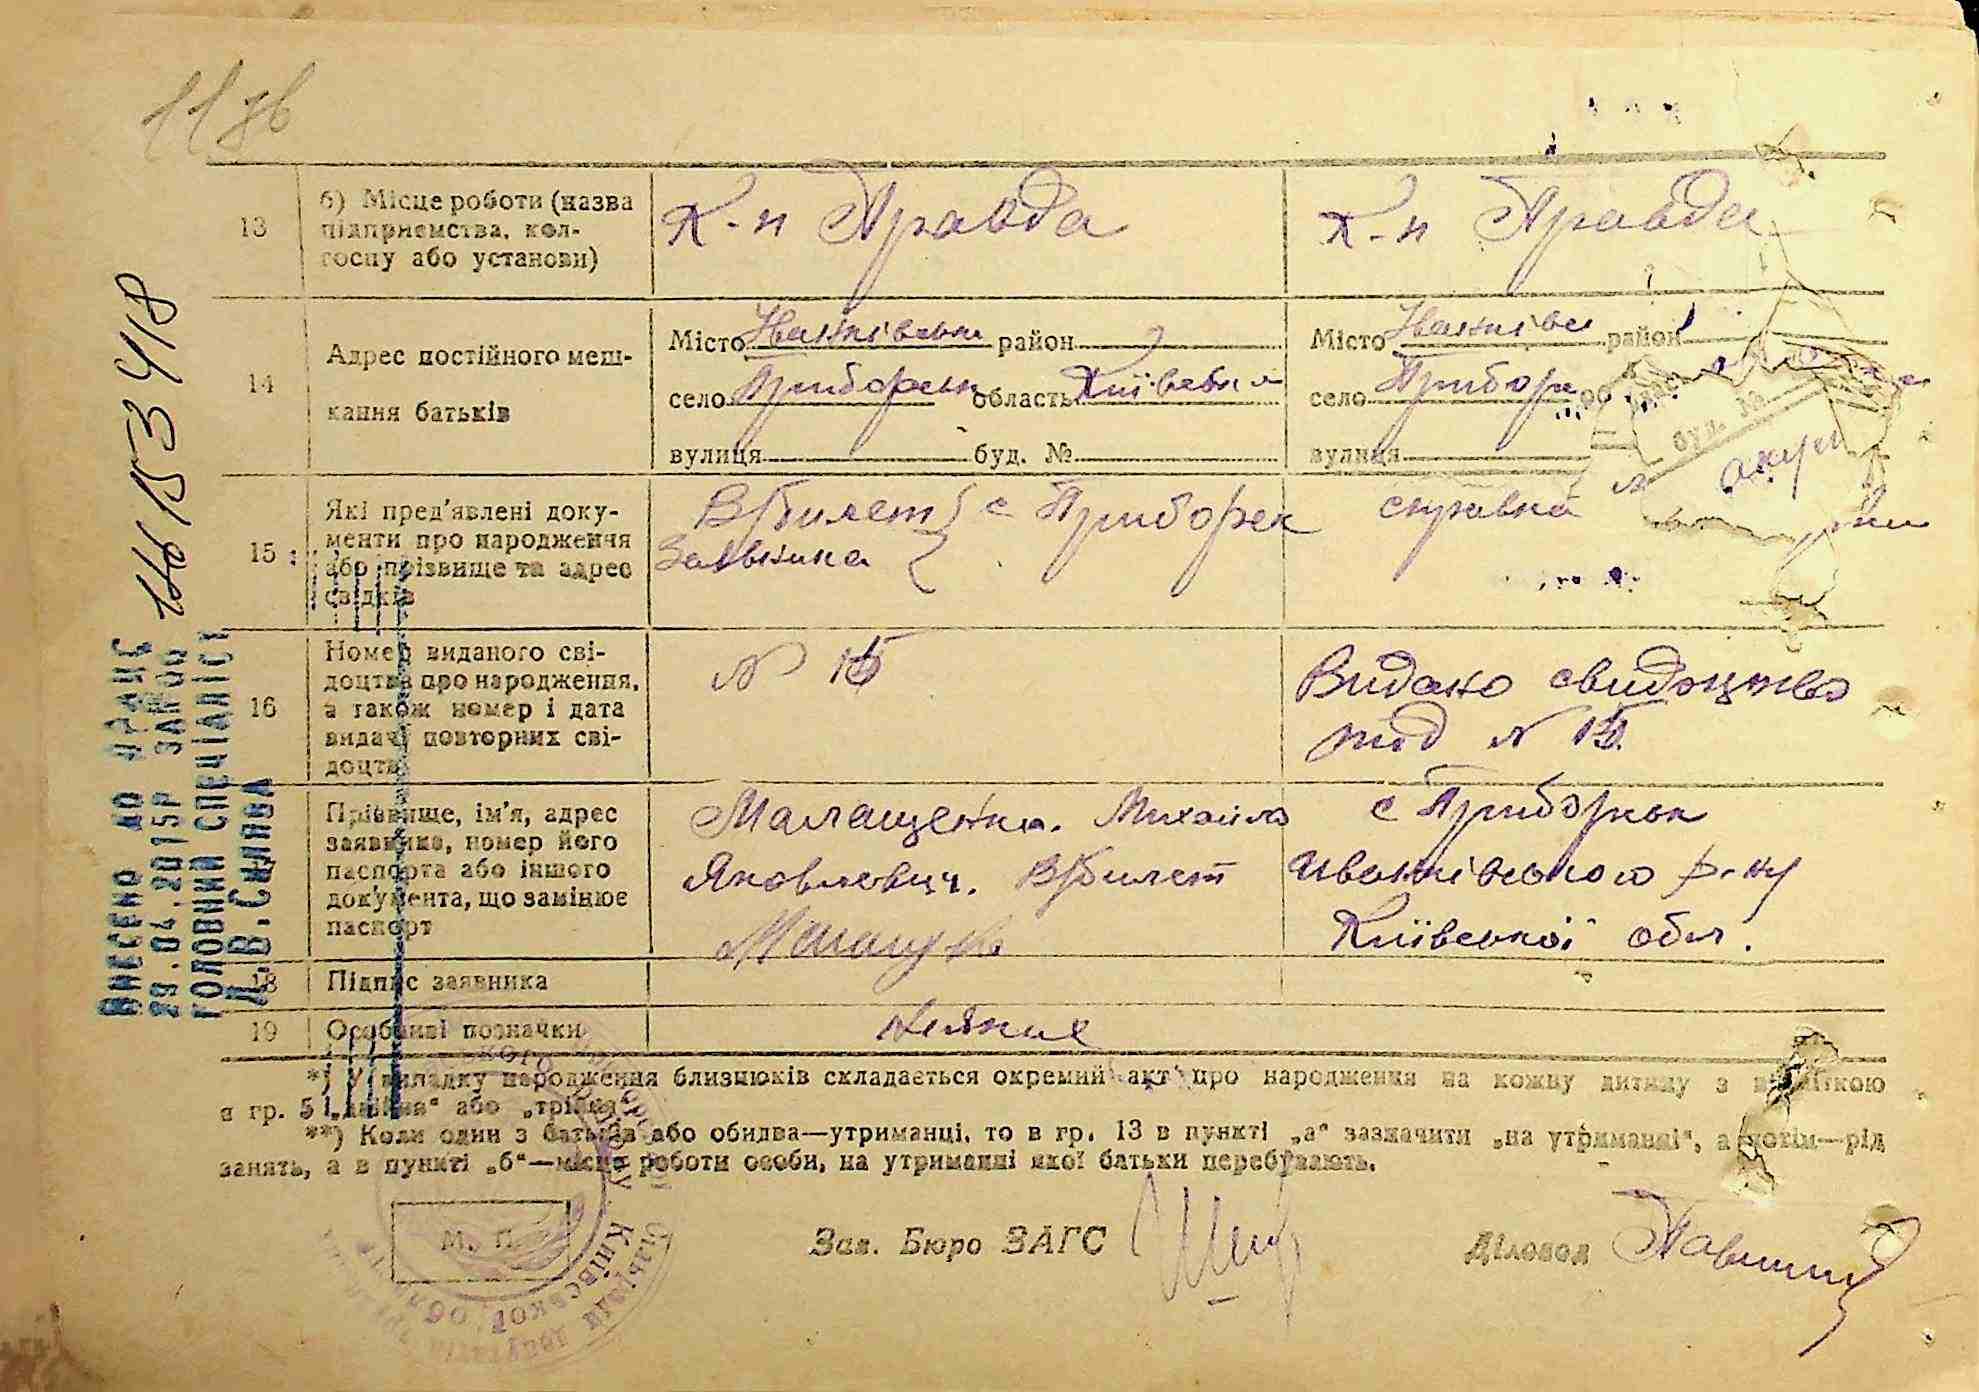 13
б) Місце роботи (назва
підприємства, кол-
госпу або установи)
К-п Правда
К-п Правда
14
Адрес постійного меш-
кання батьків
Місто Іванківськи район
село Приборськ область Київська
вулиця буд. №
Місто район
село Прибор
вулиця
буд. №
15
Які пред'явлені доку-
менти про народження
або прізвище та адрес
свідків
В/билет с Приборск справка
16
Номер виданого сві-
доцтва про народження,
а також номер і дата
видачі повторних сві-
доцтв
N 15
Видано свидоцтво
под N 15
17
Прізвище, ім'я, адрес
заявника, номер його
паспорта або іншого
документа, що замінює
паспорт
Малащенко Михайло
Яковлевич. В/билет
с Приборськ
Іванківського р-ну
Київської обл.
18
Підпис заявника
19
Особливі позначки
*) У випадку народження близнюків складається окремий акт про народження на кожну дитину з поміткою
в гр. 5 „двійня“ або „трійня“.
**) Коли один з батьків або обидва—утриманці, то в гр. 13 в пункті „а“ зазначити „на утриманні“, а потім—рід
занять, а в пункті „б“—місце роботи особи, на утриманні якої батьки перебувають.
М. П.
Зав. Бюро ЗАГС
Діловод
ВНЕСЕНО ДО ДРАЦС
29.04.2015Р
ГОЛОВНИЙ СПЕЦІАЛІСТ
Київської області